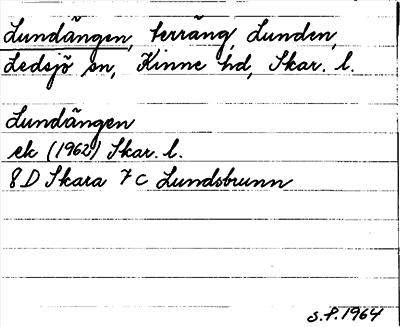 Lundängen, terräng, Lunden,
Ledsjö sn, Kinne hd, Skar. l.
Lundängen
ek (1962) Skar. l.
8 D Skara 7 c Lundsbrunn
S.P. 1964